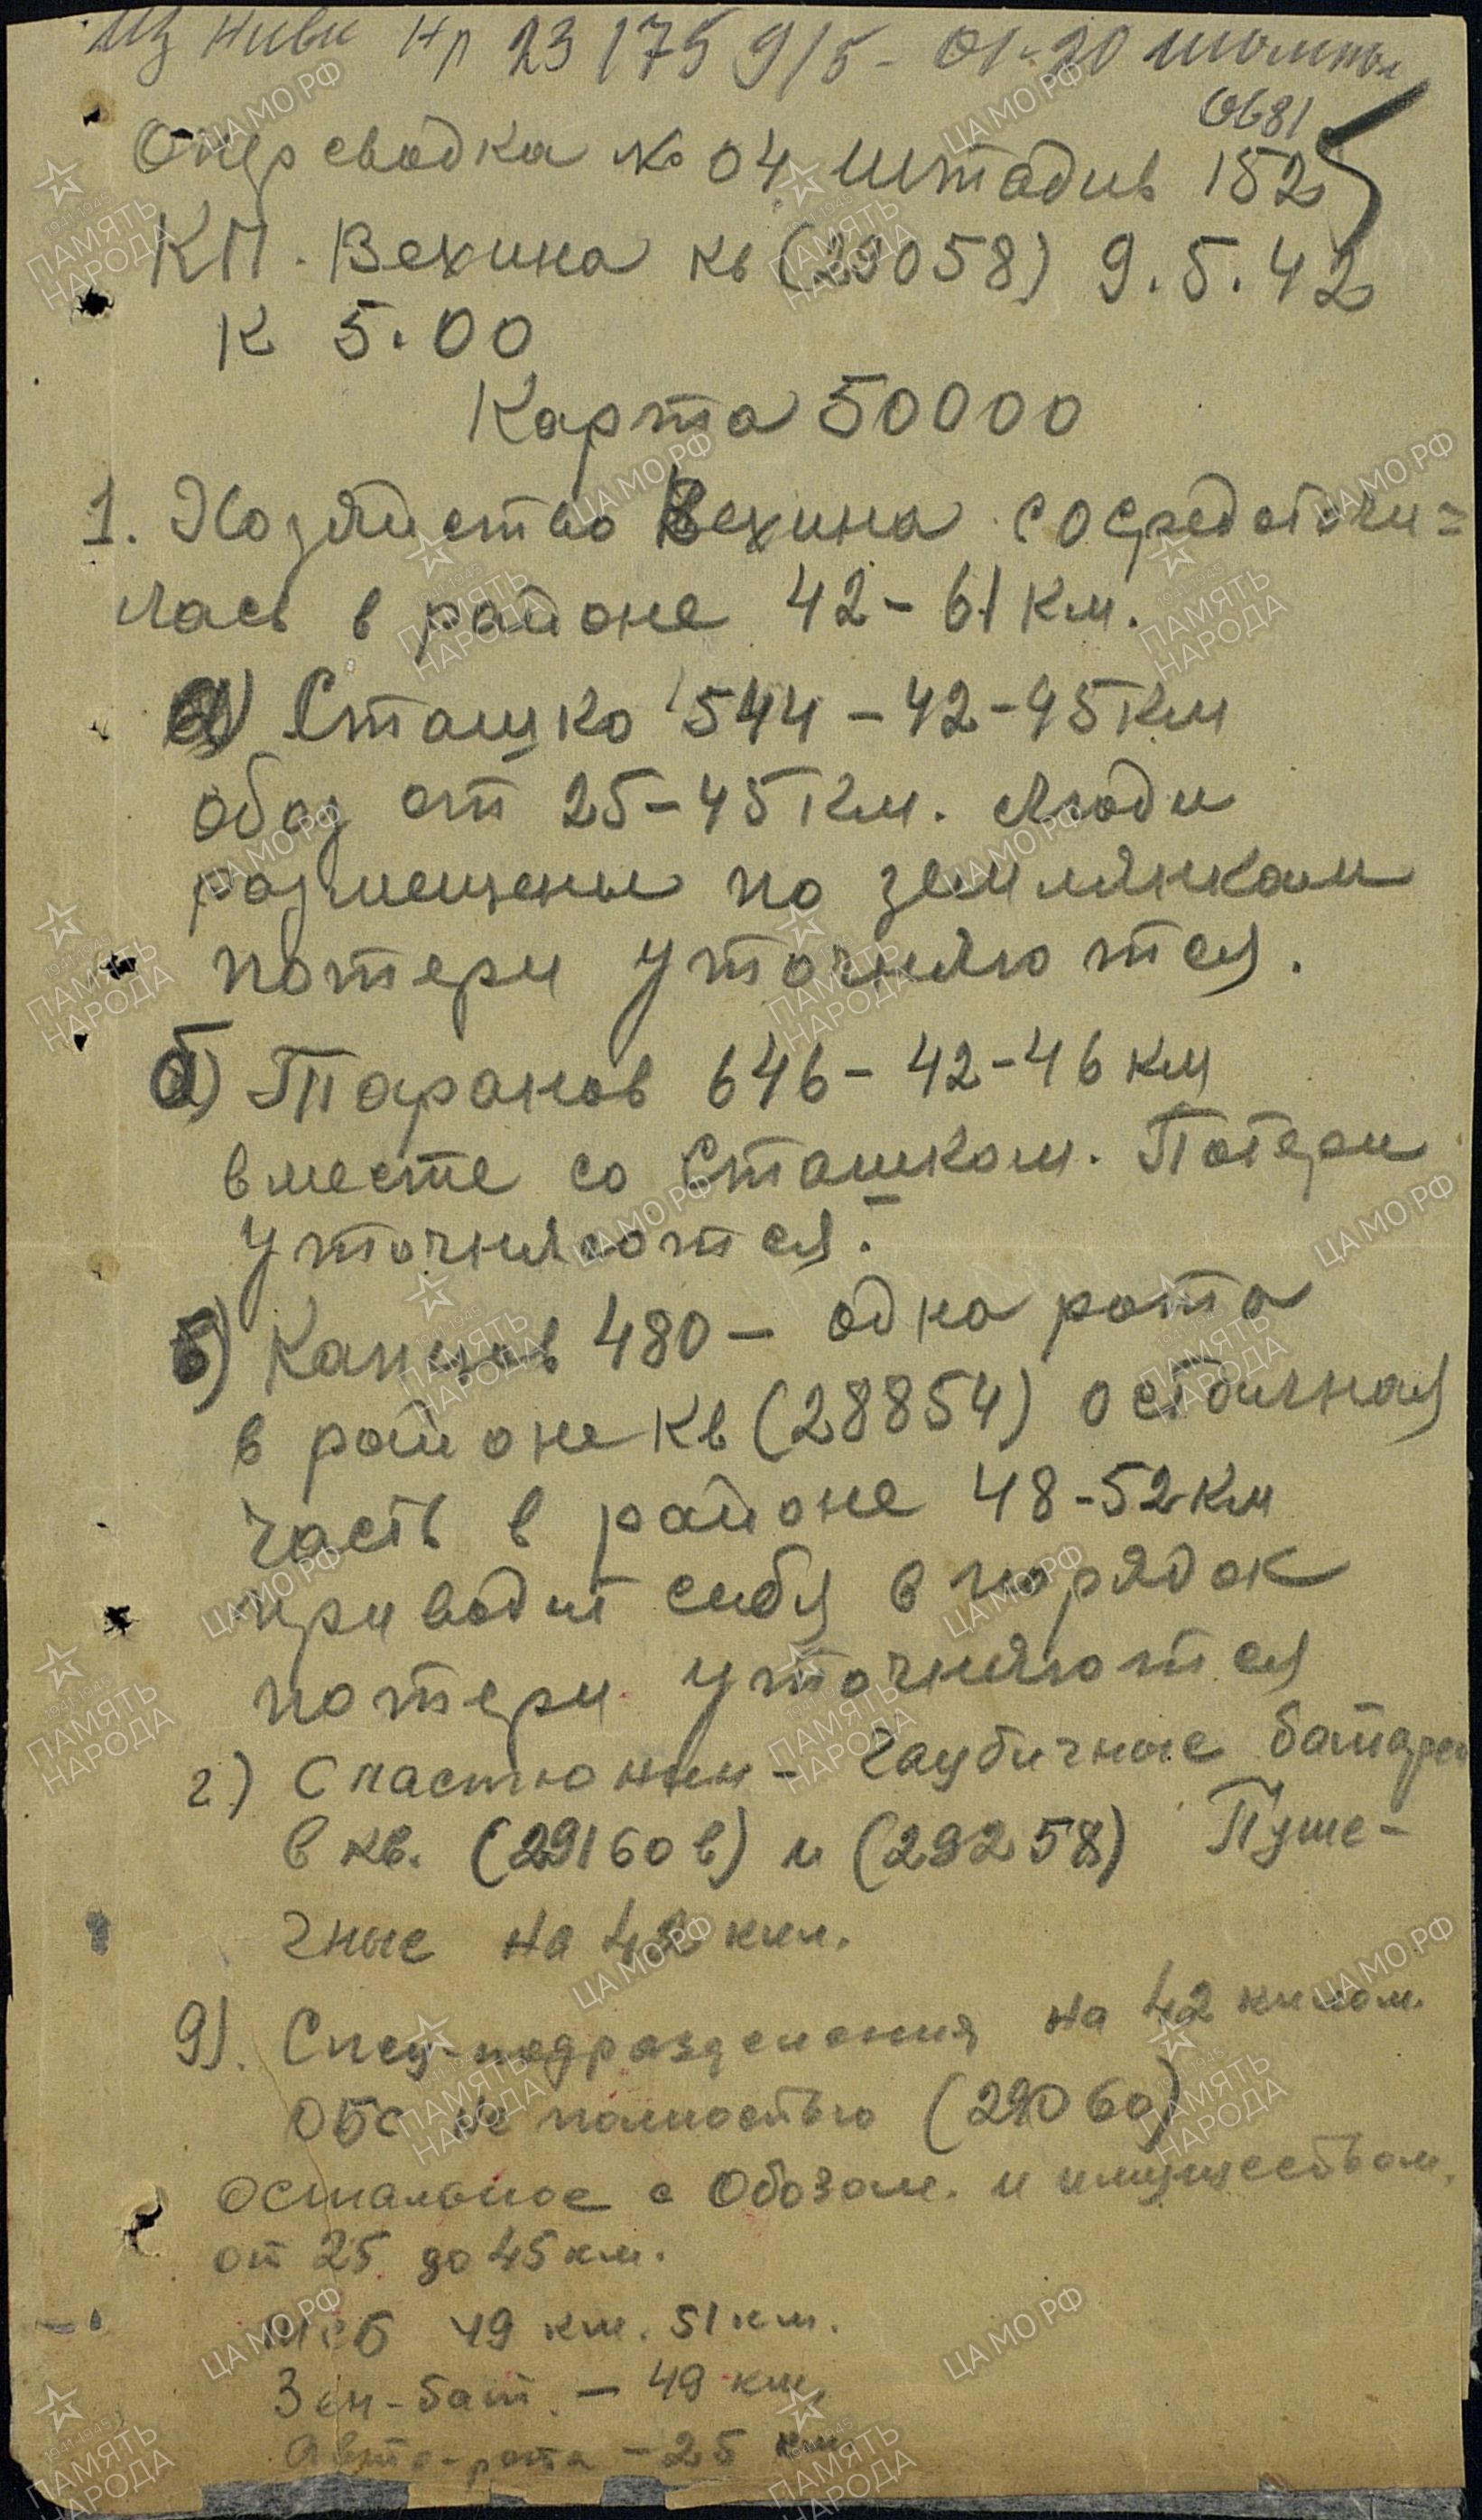 Из Нивы Нр 23 175 9/5 - 01-20
0681
Опер сводка № 04 Штадив 152
КП. Вехина кв (29058) 9.5.42
К 5.00
Карта 50000
1. Хозяйство Вехина сосредоточи=
лась в районе 42-61 км.
а) Сташко 544 - 42-45 км
обоз от 25-45 км. Люди
размещены по землянкам
потери уточняются.
б) Таранов 646 - 42-46 км
вместе со Сташком. Потери
уточняются.
в) Капцов 480 - одна рота
в районе кв (28854) остальная
часть в районе 48-52 км
приводит себя в порядок
потери уточняются
г) Спастюнин - Гаубичные батареи
в кв. (29160в) и (29258) Пуше-
чные на 42 км.
д). Спец-подразделения на 42 килом.
ОБС не полностью (29060)
остальное с Обозом. и имуществом.
от 25 до 45 км.
МСБ 49 км. 51 км.
Зен-бат. - 49 км.
Авто-рота - 25 км